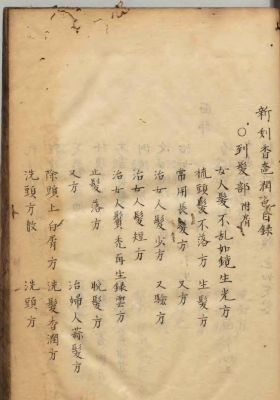 新刻香奩潤色目錄
○列髮部附膏
女人髮不乱如鏡生光方
梳頭髮不落方 生髮方
常用長髮方 又方
治女人髮少方 又驗方
治女人髮短方
治女人鬢禿再生綠雲方
止髮落方 脫髮方
又方 治婦人蒜髮方
除頭上白屑方 洗髮香潤方
洗頭方散 洗頭方